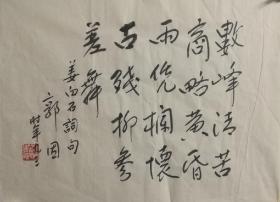 數峰清苦
商略黃昏
雨凭欄懷
古殘柳參
差舞
姜白石詞句
郭因
時年九三